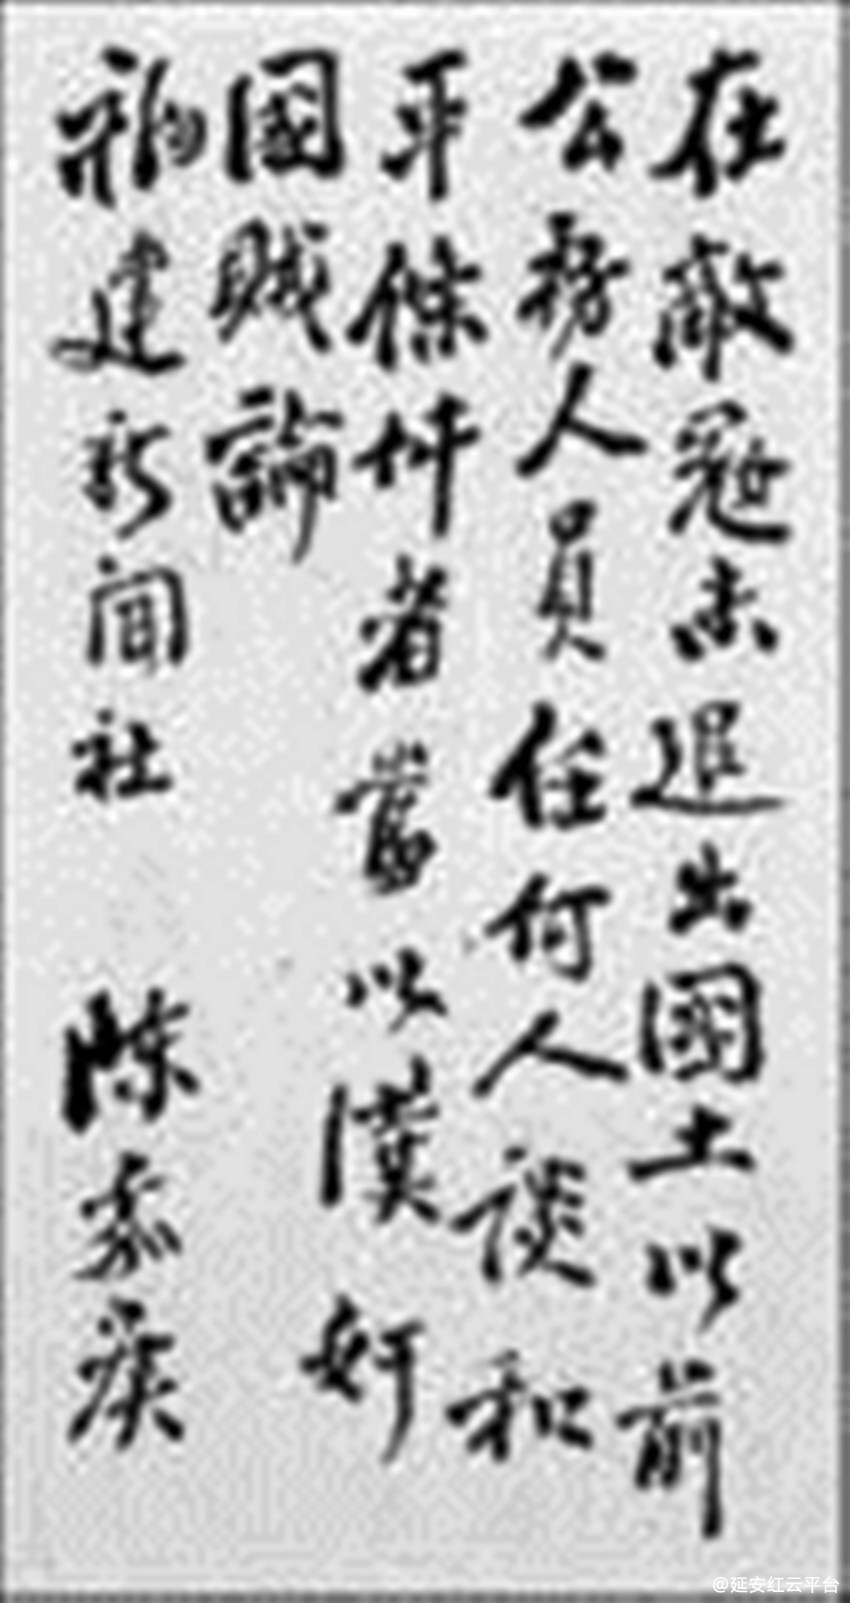 在敵寇未退出國土以前
公務人員任何人談和
平條件者當以漢奸
國賊論
福建新聞社
陳嘉庚
@延安红云平台